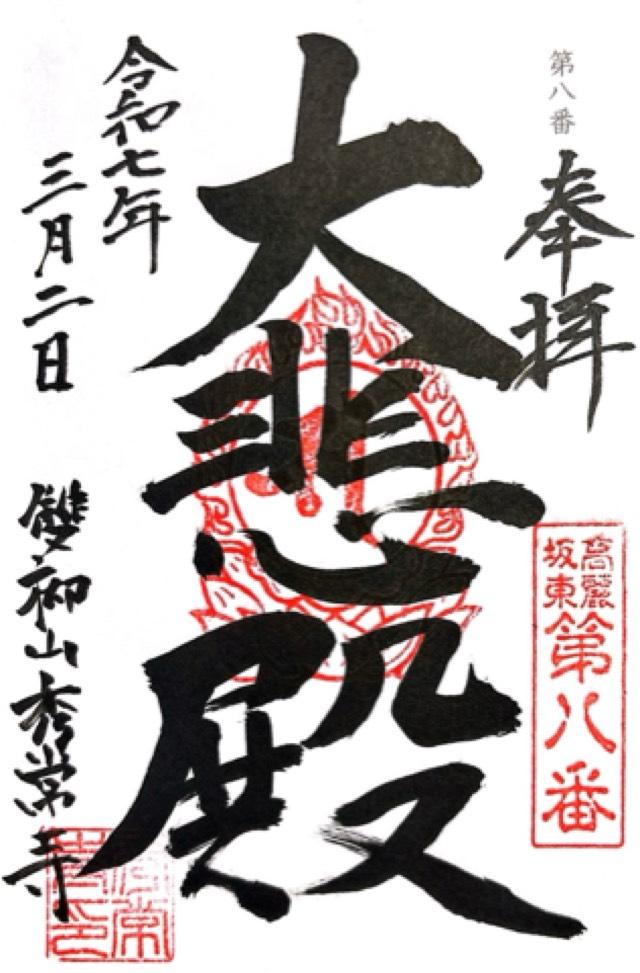 第八番
奉拝
高麗
坂東
第八番
大悲殿
令和七年
三月二日
雙柳山秀常寺